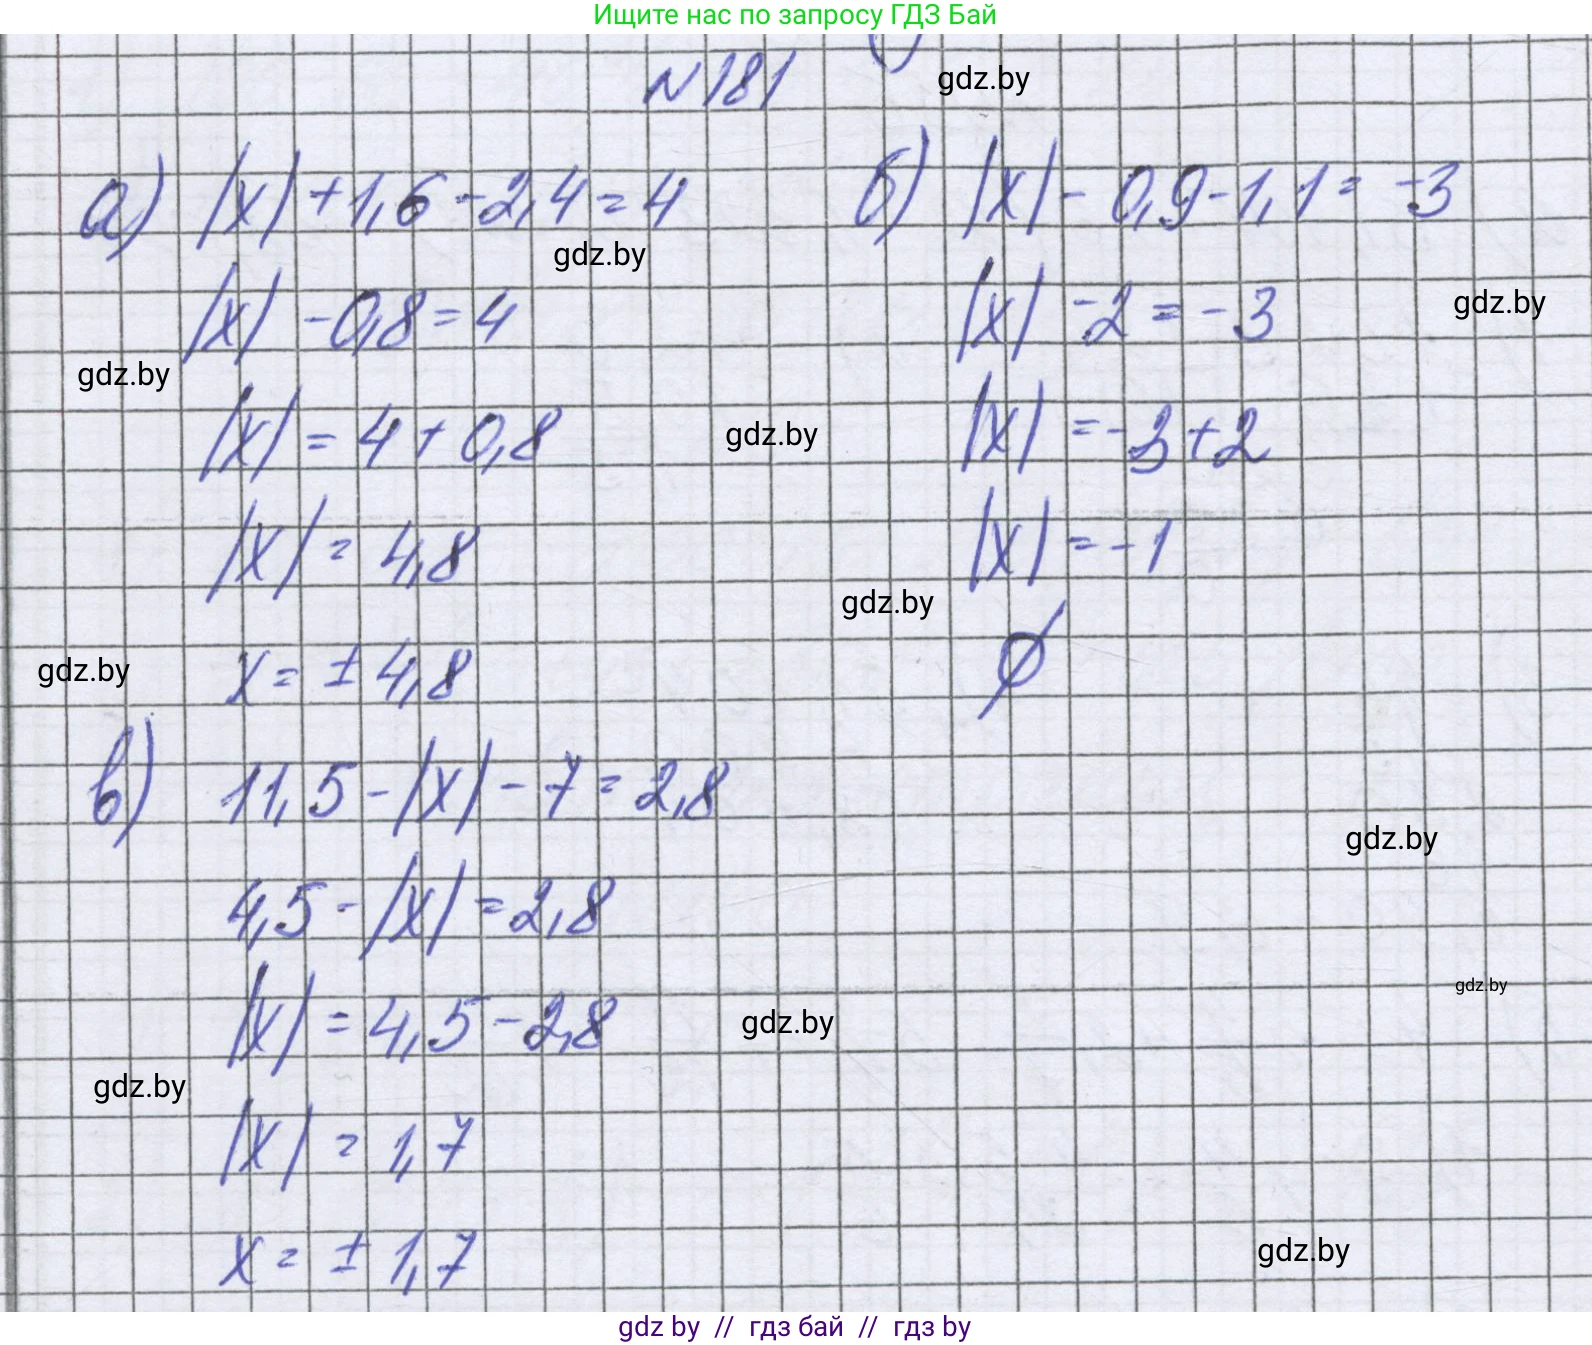 Ищите нас по запросу ГДЗ Бай
N 181
gdz.by
а) |x| + 1,6 - 2,4 = 4
gdz.by
|x| - 0,8 = 4
gdz.by
|x| = 4 + 0,8
gdz.by
|x| = 4,8
gdz.by
x = ± 4,8
б) |x| - 0,9 - 1,1 = -3
|x| - 2 = -3
gdz.by
|x| = -3 + 2
|x| = -1
gdz.by
∅
в) 11,5 - |x| - 7 = 2,8
gdz.by
4,5 - |x| = 2,8
|x| = 4,5 - 2,8
gdz.by
gdz.by
gdz.by
|x| = 1,7
x = ± 1,7
gdz.by
gdz by // гдз бай // гдз by